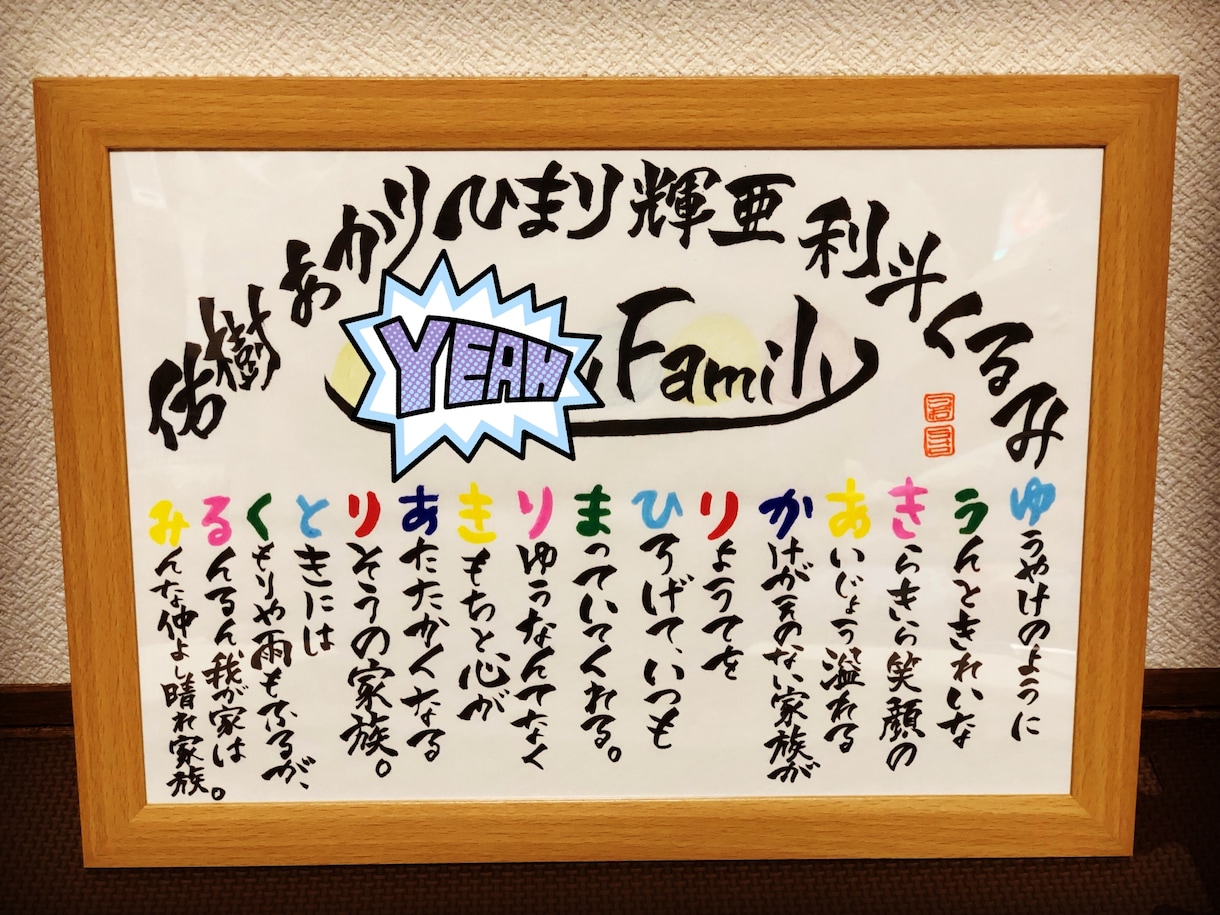 佑樹 あかり ひまり 輝亜 利斗 くるみ
YEAH Family
ゆうやけのように
うんときれいな
きらきら笑顔の
あいじょう溢れる
かけがえのない家族が
りょうてを
ひろげて、いつも
まっていてくれる。
りゆうなんてなく
きもちと心が
あたたかくなる
りそうの家族。
ときには
くもりや雨もふるが、
るんるん我が家は
みんな仲よし晴れ家族。